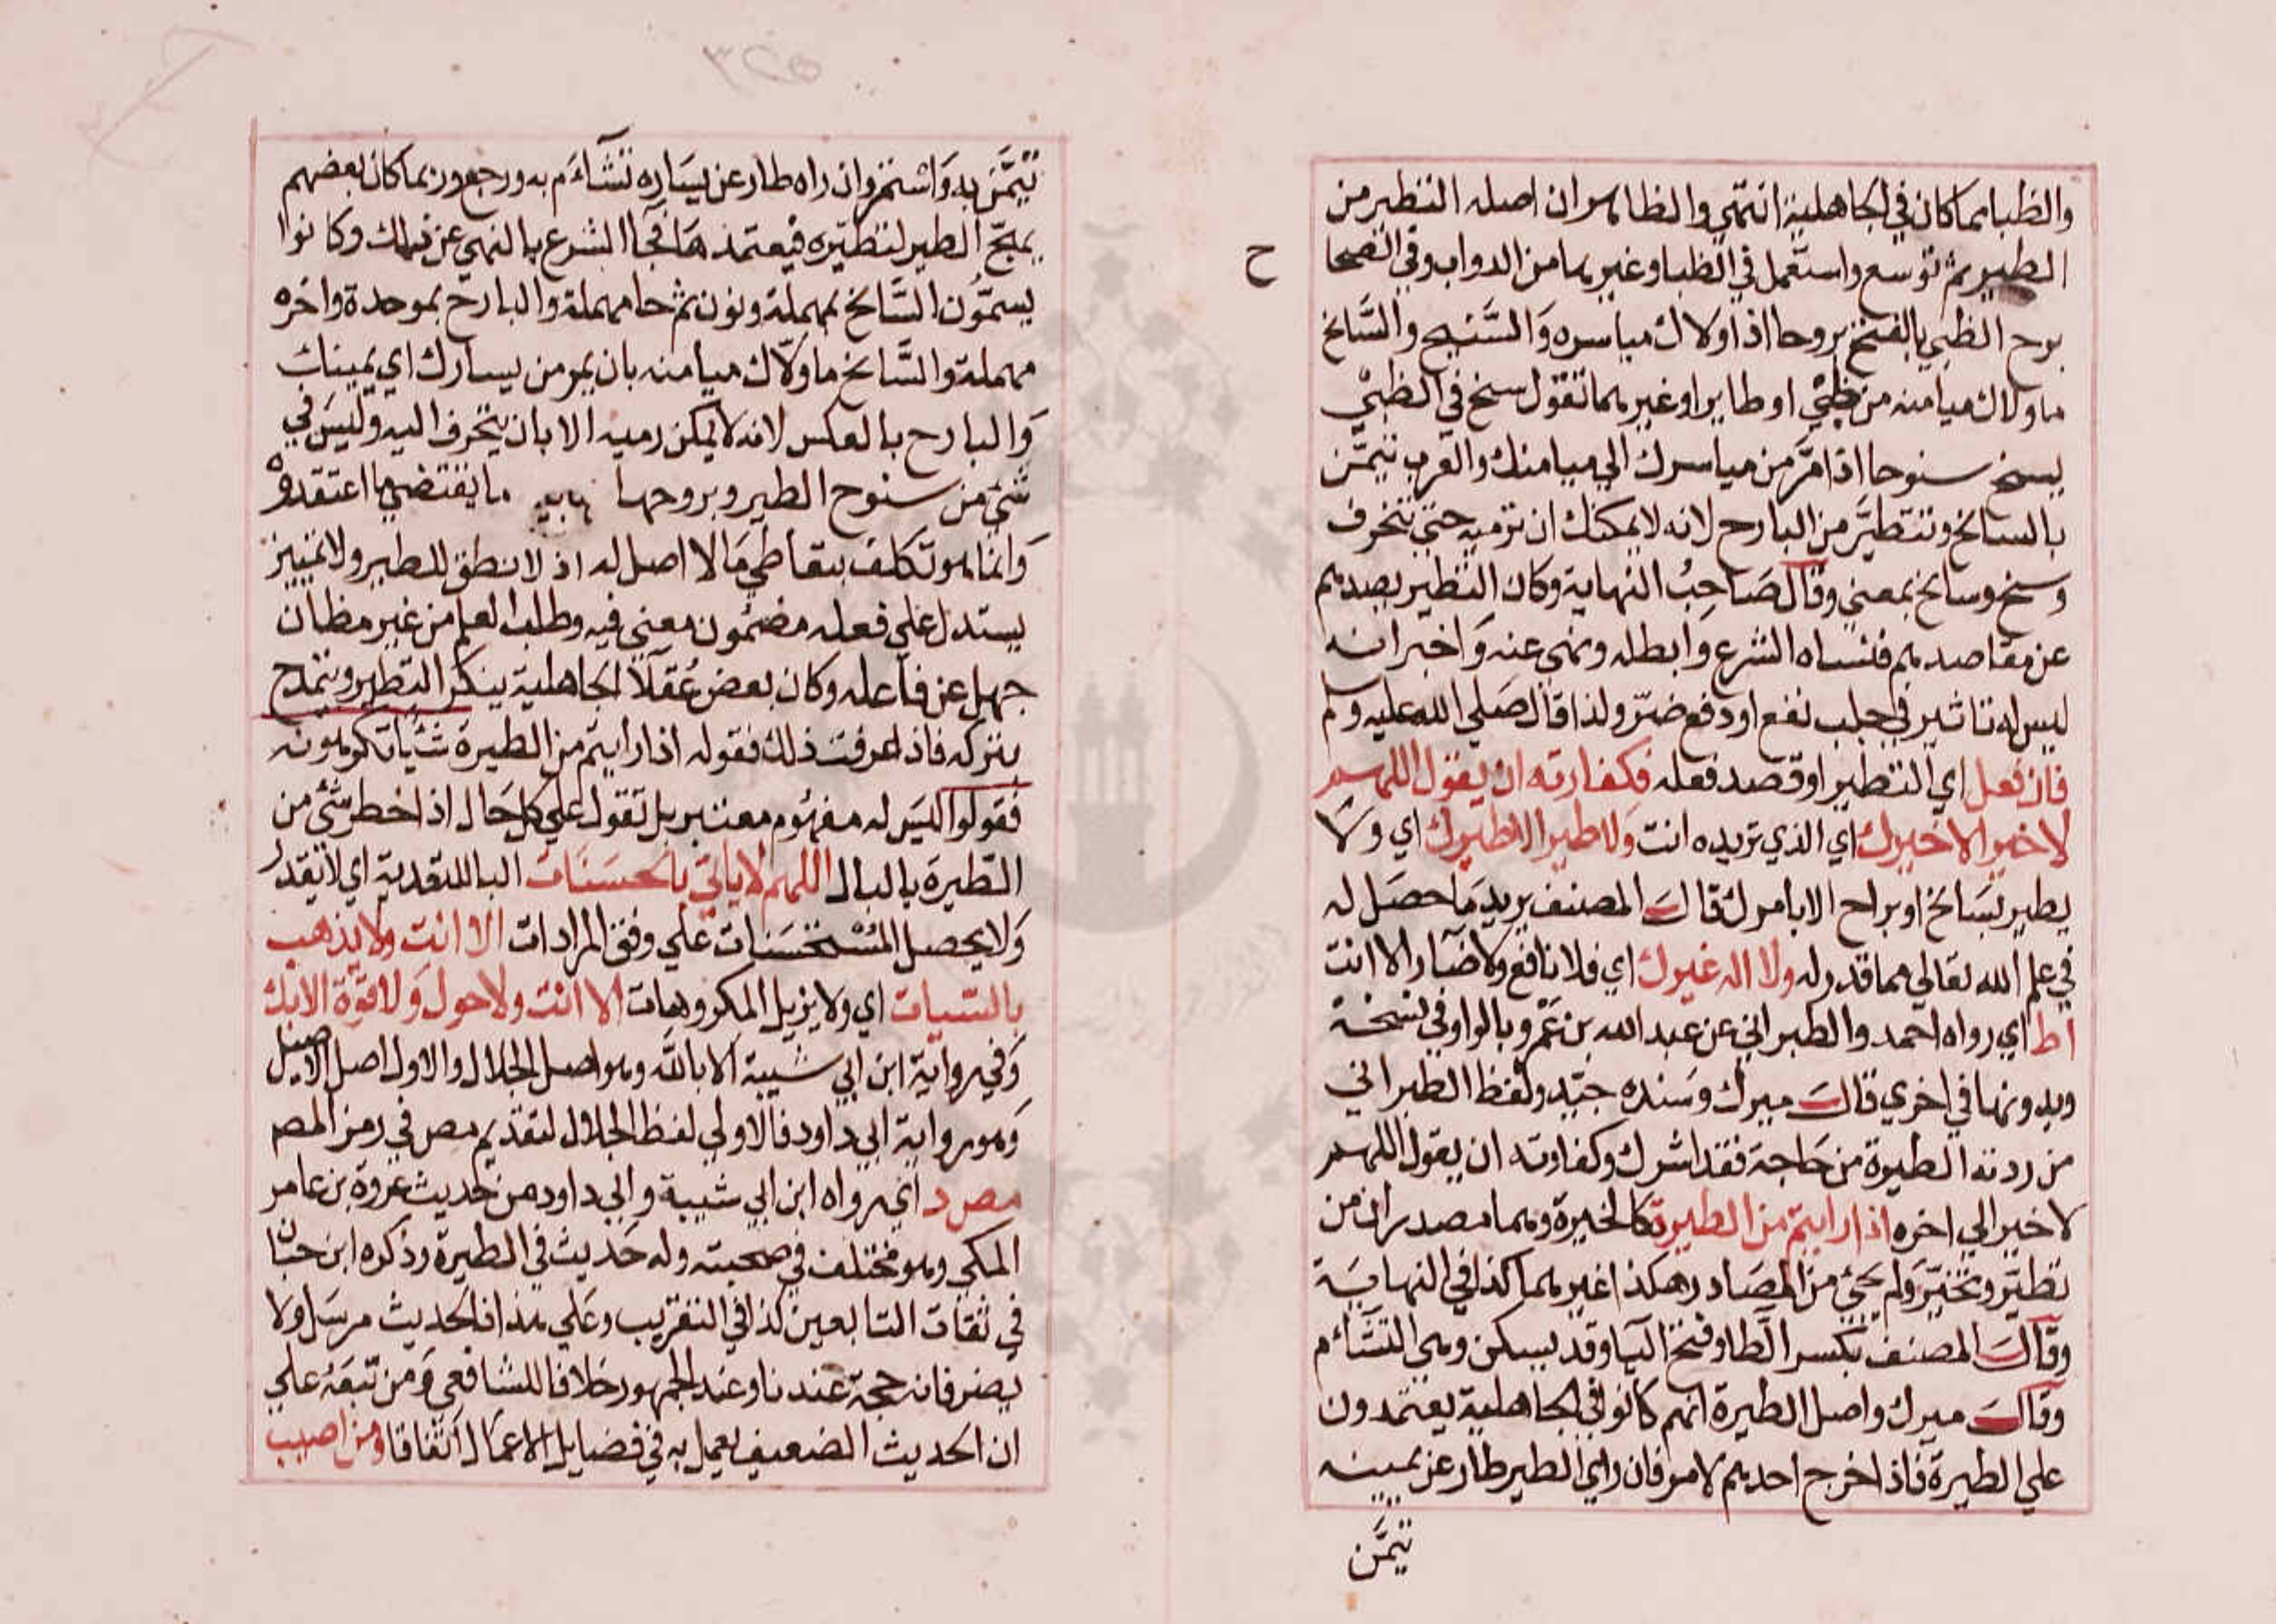 والظبا بما كان في الجاهلية انتهي والظاهر ان اصله التطير من
الطير ثم توسع واستعمل في الظبا وغيرها من الدواب وفي الصحا
ح
برح الظبي بالفتح بروحا اذا ولاك مياسره والسنيح والسانح
ما ولاك ميامنه من ظبي او طاير او غيرهما تقول سنح في الظبي
يسنح سنوحا اذا مر من مياسرك الي ميامنك والعرب تتيمن
بالسانح وتتطير من البارح لانه لا يمكنك ان ترميه حتي تنحرف
وسنح وسانح بمعني وقال صاحب النهاية وكان التطير يصدهم
عن مقاصدهم فنفاه الشرع وابطله ونهي عنه واخبر انه
ليس له تاثير في جلب نفع او دفع ضر ولذا قال صلي الله عليه وسلم
فان فعل اي التطير او قصد فعله فكفارته ان يقول اللهم
لا خير الا خيرك اي الذي تريده انت ولا طير الا طيرك اي ولا
يطير بسانح او براح الا بامرك قال المصنف يريد ما حصل له
في علم الله تعالي مما قدر له ولا اله غيرك اي فلا نافع ولا ضار الا انت
اط اي رواه احمد والطبراني عن عبد الله بن عمرو بالواو في نسخة
وبدونها في اخري قال ميرك وسنده جيد ولفظ الطبراني
من ردته الطيرة من حاجة فقد اشرك وكفارته ان يقول اللهم
لا خير الي اخره اذا رايتم من الطيرة كالخيرة وهما مصدران من
تطير وتخير ولم يجئ من المصادر هكذا غيرهما كذا في النهاية
وقال المصنف بكسر الطا وفتح اليا وقد يسكن وهي التشائم
وقال ميرك واصل الطيرة انهم كانو في الجاهلية يعتمدون
علي الطيرة فاذا خرج احدهم لامر فان راي الطير طار عن يمينه
تيمن
تيمن به واستمر وان راه طار عن يساره تشاءم به ورجع وربما كان بعضهم
يهيج الطير لتطيره فيعتمدها فجا الشرع بالنهي عن ذلك وكانوا
يسمون السانح بمهملة ونون ثم حا مهملة والبارح بموحدة واخره
مهملة والسانح ما ولاك ميامنه بان يمر من يسارك اي يمينك
والبارح بالعكس لانه لا يمكن رميه الا بان ينحرف اليه وليس في
شئ من سنوح الطير وبروحها ما يقتضي ما اعتقدوه
وانما هو تكلف بتعاطي ما لا اصل له اذ لا نطق للطير ولا تمييز
يستدل علي فعله مضمون معني فيه وطلب العلم من غير مظان
جهل عن فاعله وكان بعض عقلا الجاهلية ينكر التطير ويتمدح
بتركه فاذا عرفت ذلك فقوله اذا رايتم من الطيرة شيئا تكرهونه
فقولوا ليس له مفهوم معتبر بل تقول علي كل حال اذا خطر شئ من
الطيرة بالبال اللهم لا ياتي بالحسنات البا للتعدية اي لا يقدر
ولا يحصل المستحسنات علي وفق المرادات الا انت ولا يذهب
بالسيات اي ولا يزيل المكروهات الا انت ولا حول ولا قوة الا بك
وفي رواية ابن ابي شيبة الا بالله وهو اصل الجلال والاول اصل الاصيل
وهو رواية ابي داود فالاولي لفظ الجلال لتقديم مص في رمز المص
مص د اي رواه ابن ابي شيبة وابي داود من حديث عروة بن عامر
المكي وهو مختلف في صحبته وله حديث في الطيرة وذكره ابن حبان
في ثقات التابعين كذا في التقريب وعلي هذا فالحديث مرسل ولا
يضر فانه حجة عندنا وعند الجمهور خلافا للشافعي ومن تبعه علي
ان الحديث الضعيف يعمل به في فضايل الاعمال اتفاقا ومن اصيب